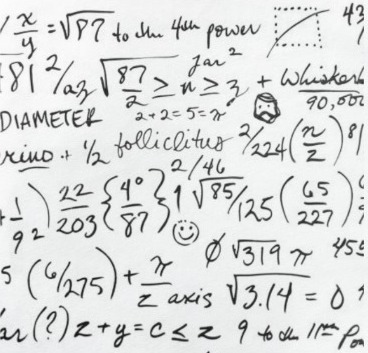 x/y = √87 to the 4th power 43
+81 2/az √87/2 ≥ n ≥ z + Whisker
90,000
DIAMETER 2+2=5=π
+ 1/2 folliclitus 2/224 (n/z) 81
+ 1/9 2) 22/203 {4°/87} 1 2/46 √85/125 (65/227)
Ø √319 π 455
5 (6/275) + π/z axis √3.14 = 0
(?) z + y = c ≤ z 9 to the 11th Po